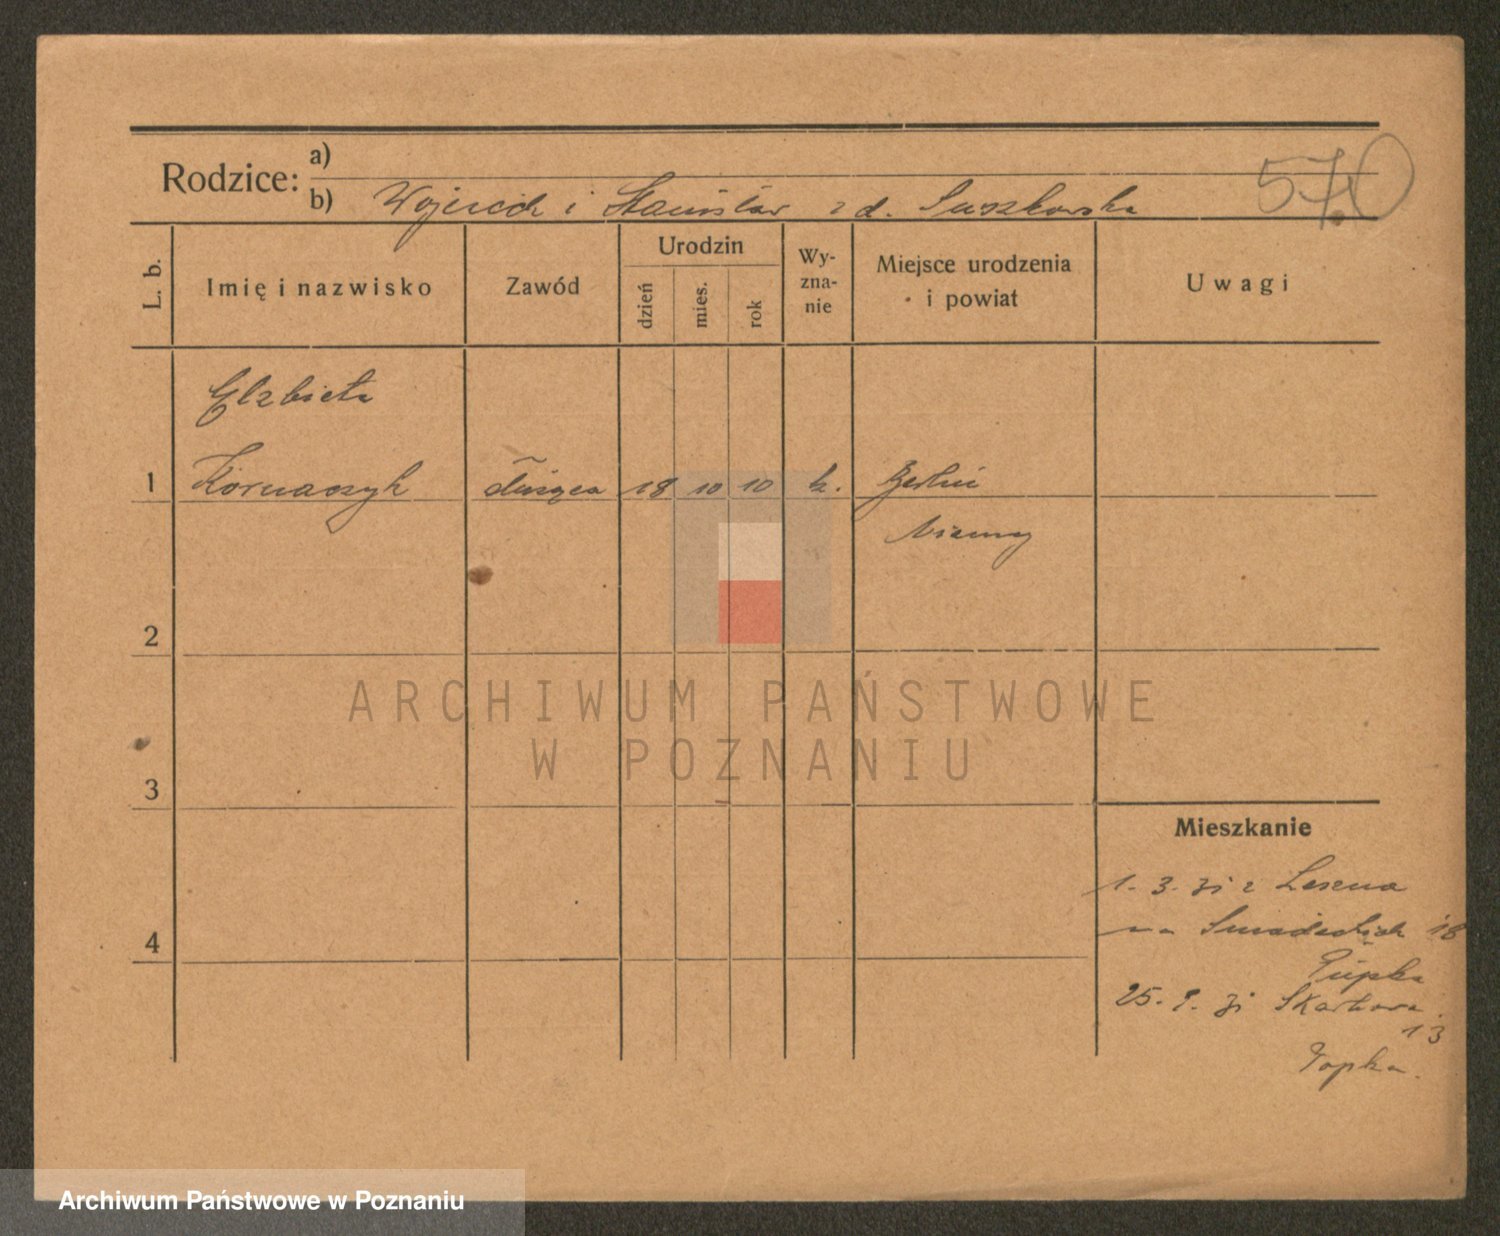 Rodzice:
a)
b) Wojciech i Stanisław z d. Suszkowska
570
L. b.
Imię i nazwisko
Zawód
Urodzin
dzień
mies.
rok
Wy-
zna-
nie
Miejsce urodzenia
i powiat
Uwagi
Elzbieta
1 Kornaszyk służąca 18 10 10 k. Berlin
Niemcy
2
3
4
ARCHIWUM PAŃSTWOWE
W POZNANIU
Mieszkanie
1. 3. 31 z Leszna
na Śniadeckich 18
Pupka
25. 8. 31 Skarbowa
13
Topka.
Archiwum Państwowe w Poznaniu